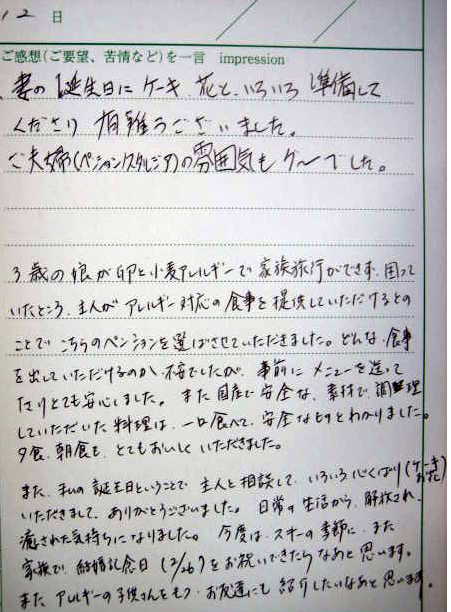 12 日
ご感想(ご要望、苦情など)を一言 impression
妻の誕生日にケーキ、花と、いろいろ準備して
くださり 有難うございました。
ご夫婦(ペンションノスタルジア)の雰囲気もグ〜でした。
3歳の娘が卵と小麦アレルギーで家族旅行ができず、困って
いたところ、主人がアレルギー対応の食事を提供していただけるとの
ことでこちらのペンションを選ばさせていただきました。どんな食事
を出していただけるのか、不安でしたが、事前にメニューを送って
たりとても安心しました。また国産で安全な、素材で、調理
していただいた料理は、一口食べて、安全なものとわかりました。
夕食、朝食も、とてもおいしくいただきました。
また、私の誕生日ということで主人と相談して、いろいろ心くばり(ケーキ
お花)
いただきまして、ありがとうございました。日常の生活から、解放され、
癒された気持ちになりました。今度は、スキーの季節に、また
家族で、結婚記念日(2/26)をお祝いできたらなあと思います。
また アレルギーの子供さんをもつ、お友達にも紹介したいなあと思います。